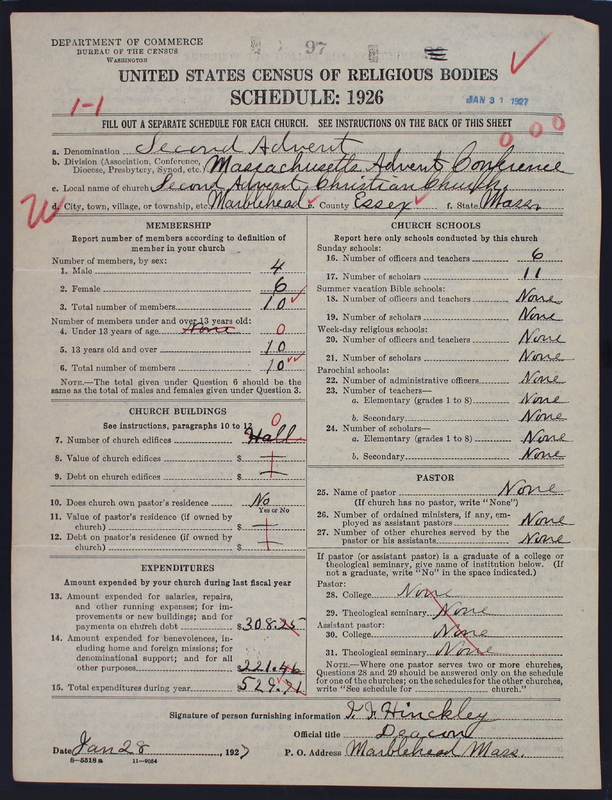 DEPARTMENT OF COMMERCE
BUREAU OF THE CENSUS
WASHINGTON
97
UNITED STATES CENSUS OF RELIGIOUS BODIES
SCHEDULE: 1926
1-1
JAN 31 1927
FILL OUT A SEPARATE SCHEDULE FOR EACH CHURCH. SEE INSTRUCTIONS ON THE BACK OF THIS SHEET
000
a. Denomination Second Advent
b. Division (Association, Conference, Diocese, Presbytery, Synod, etc.) Massachusetts Advent Conference
c. Local name of church Second Advent Christian Church.
d. City, town, village, or township, etc. Marblehead e. County Essex f. State Mass.
MEMBERSHIP
Report number of members according to definition of
member in your church
Number of members, by sex:
1. Male 4
2. Female 6
3. Total number of members 10
Number of members under and over 13 years old:
4. Under 13 years of age None 0
5. 13 years old and over 10
6. Total number of members 10
NOTE.—The total given under Question 6 should be
same as the total of males and females given under Question 3.
CHURCH BUILDINGS
See instructions, paragraphs 10 to 12
7. Number of church edifices Hall 0
8. Value of church edifices $
9. Debt on church edifices $
10. Does church own pastor's residence No
Yes or No
11. Value of pastor's residence (if owned by
church) $
12. Debt on pastor's residence (if owned by
church) $
EXPENDITURES
Amount expended by your church during last fiscal year
13. Amount expended for salaries, repairs,
and other running expenses; for im-
provements or new buildings; and for
payments on church debt $308.25
14. Amount expended for benevolences, in-
cluding home and foreign missions; for
denominational support; and for all
other purposes 221.46
15. Total expenditures during year $529.71
CHURCH SCHOOLS
Report here only schools conducted by this church
Sunday schools:
16. Number of officers and teachers 6
17. Number of scholars 11
Summer vacation Bible schools:
18. Number of officers and teachers None
19. Number of scholars None
Week-day religious schools:
20. Number of officers and teachers None
21. Number of scholars None
Parochial schools:
22. Number of administrative officers None
23. Number of teachers—
a. Elementary (grades 1 to 8) None
b. Secondary None
24. Number of scholars—
a. Elementary (grades 1 to 8) None
b. Secondary None
PASTOR
25. Name of pastor None
(If church has no pastor, write "None")
26. Number of ordained ministers, if any, em-
ployed as assistant pastors None
27. Number of other churches served by the
pastor or his assistants None
If pastor (or assistant pastor) is a graduate of a college or
theological seminary, give name of institution below. (If
not a graduate, write "No" in the space indicated.)
Pastor:
28. College None
29. Theological seminary None
Assistant pastor:
30. College None
31. Theological seminary None
NOTE.—Where one pastor serves two or more churches,
Questions 28 and 29 should be answered only on the schedule
for one of the churches; on the schedules for the other churches,
write "See schedule for church."
Signature of person furnishing information F. F. Hinckley
Official title Deacon
Date Jan 28, 1927 P. O. Address Marblehead Mass.
8-5518 a 11-9054